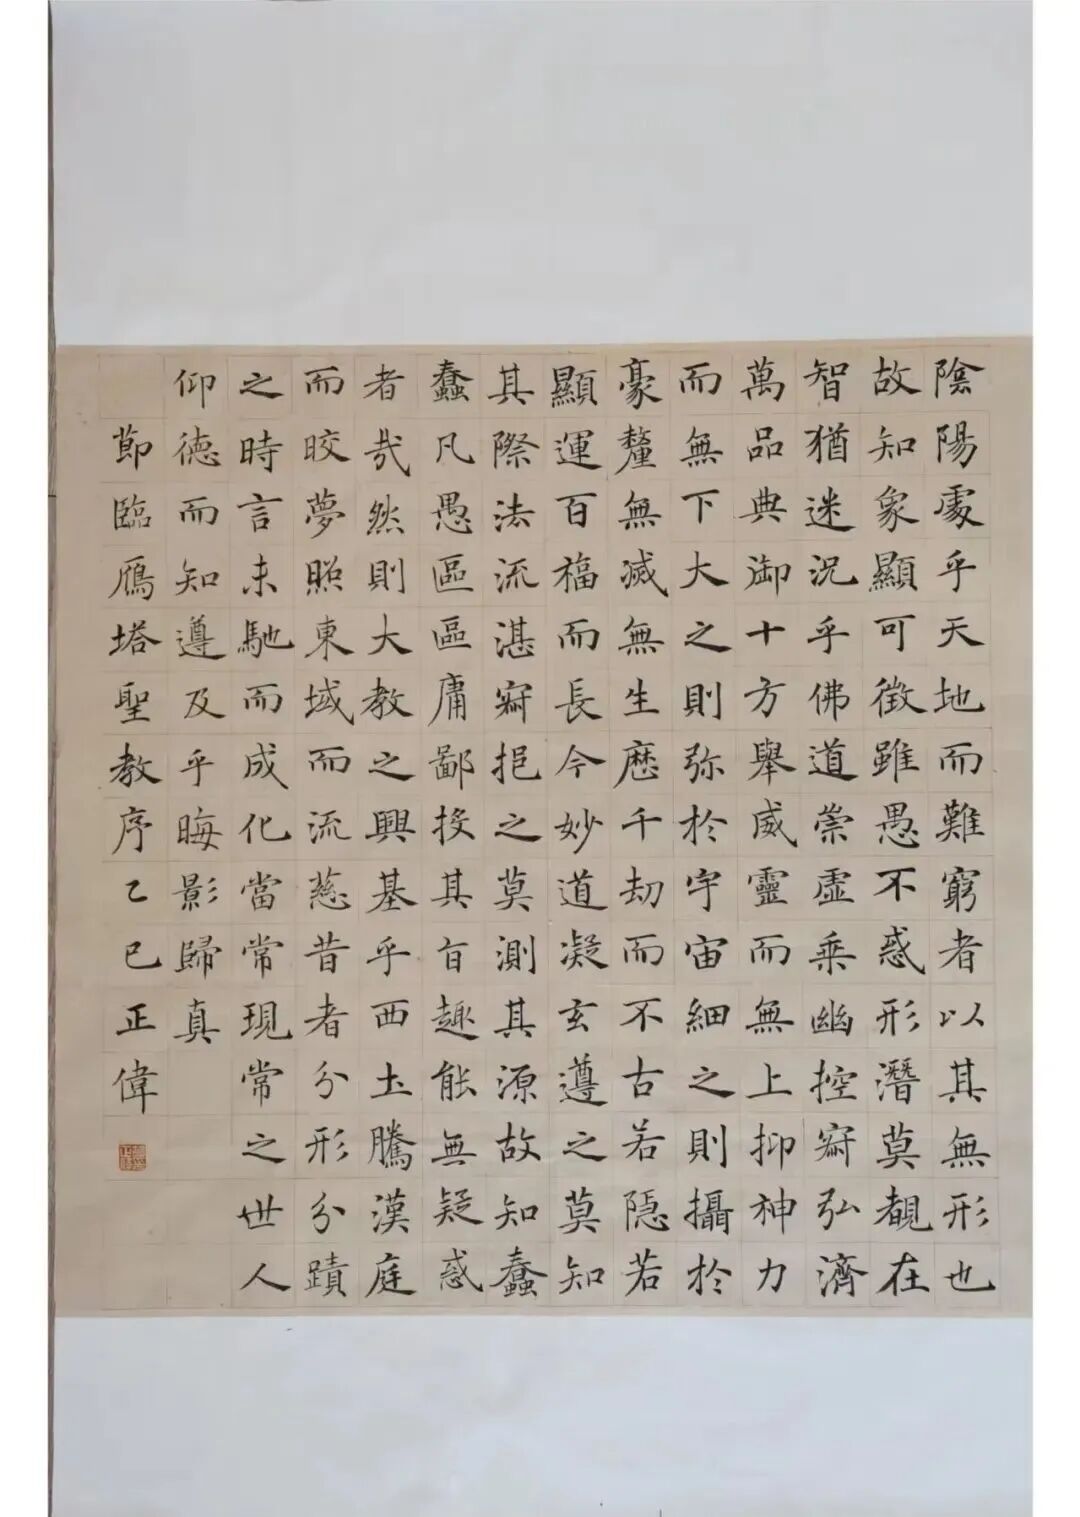 陰陽處乎天地而難窮者以其無形也
故知象顯可徵雖愚不惑形潛莫覩在
智猶迷況乎佛道崇虛乘幽控寂弘濟
萬品典御十方舉威靈而無上抑神力
而無下大之則弥於宇宙細之則攝於
豪釐無滅無生歷千劫而不古若隱若
顯運百福而長今妙道凝玄遵之莫知
其際法流湛寂挹之莫測其源故知蠢
蠢凡愚區區庸鄙投其旨趣能無疑惑
者哉然則大教之興基乎西土騰漢庭
而晈夢照東域而流慈昔者分形分蹟
之時言未馳而成化當常現常之世人
仰德而知遵及乎晦影歸真
節臨鴈塔聖教序乙巳正偉